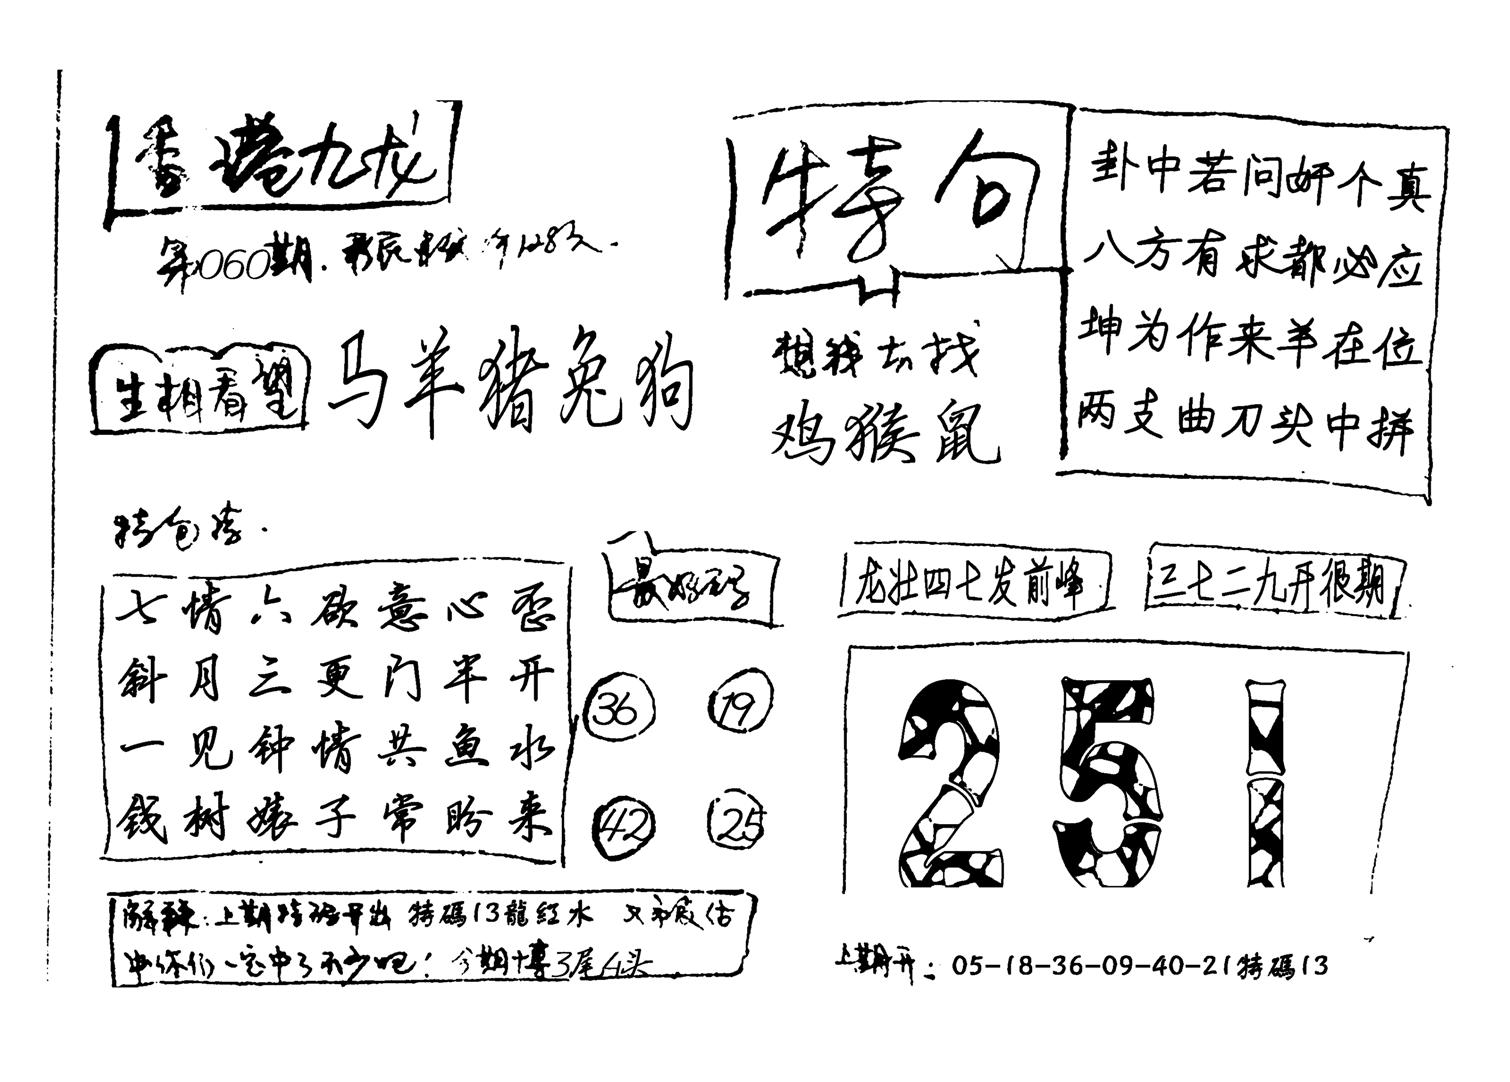 香港九龙
第060期.
特句
卦中若问奸个真
八方有求都必应
坤为作来羊在位
两支曲刀头中拼
生相看望
马羊猪兔狗
想我去找
鸡猴鼠
特包诗.
七情六欲意心歪
斜月三更门半开
一见钟情共鱼水
钱树婊子常盼来
最好码
36 19
42 25
龙壮四七发前峰
三七二九开很期
251
解释:上期特码开出 特碼13龍红水 估
你们一定中了不少吧! 今期博3尾4头
上期开: 05-18-36-09-40-21特碼13